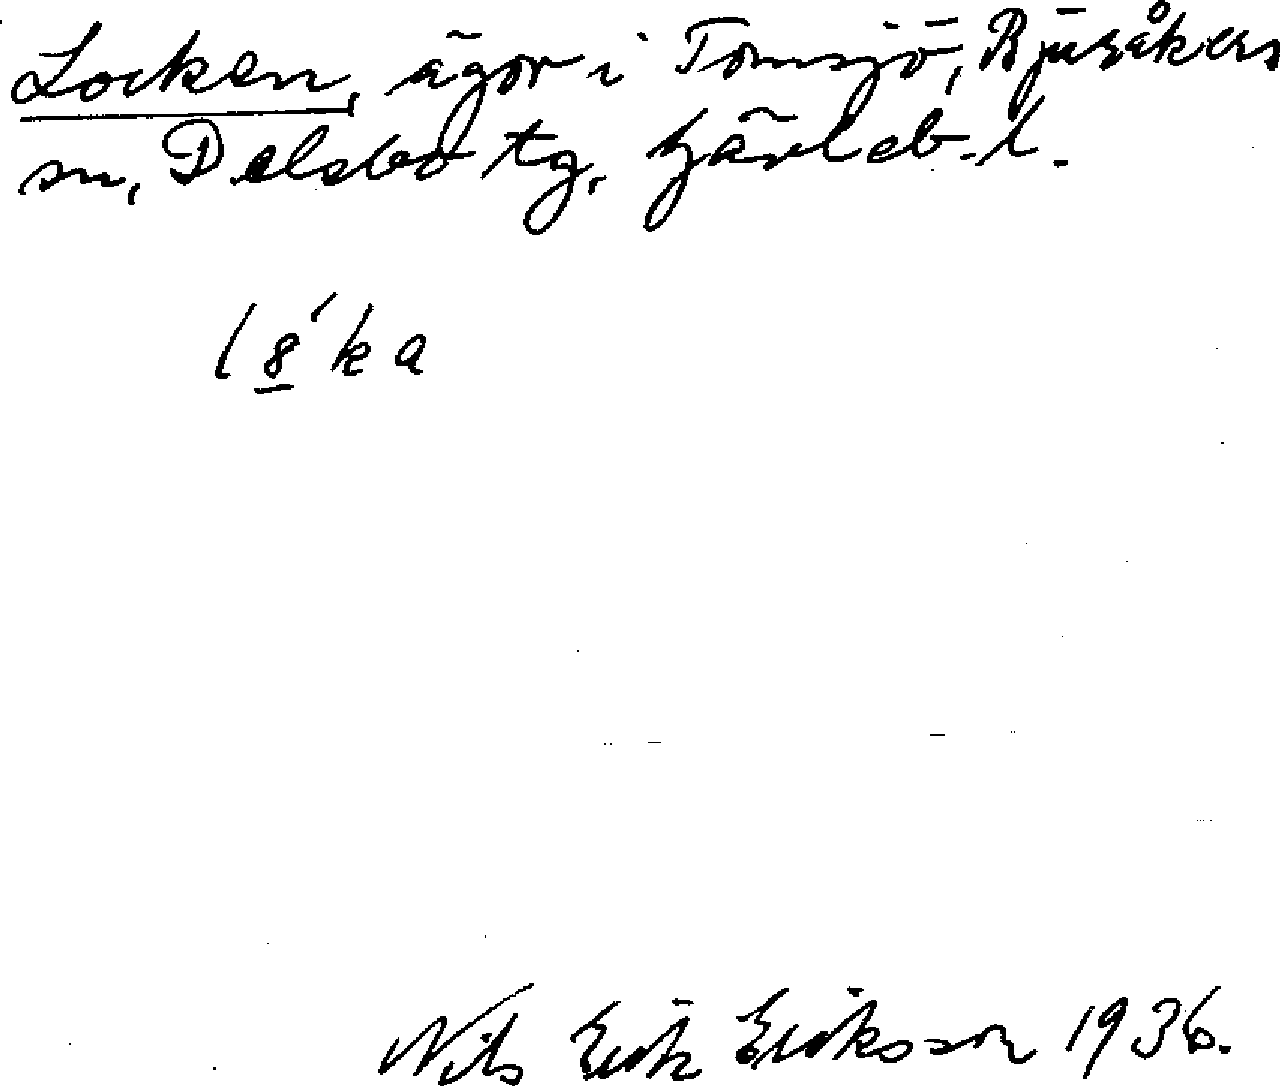 Locken, ägor i Tomsjö, Bjuråkers
sn, Delsbo tg, Gävleb. l.
l8́ka
Nils Erik Eriksson 1936.